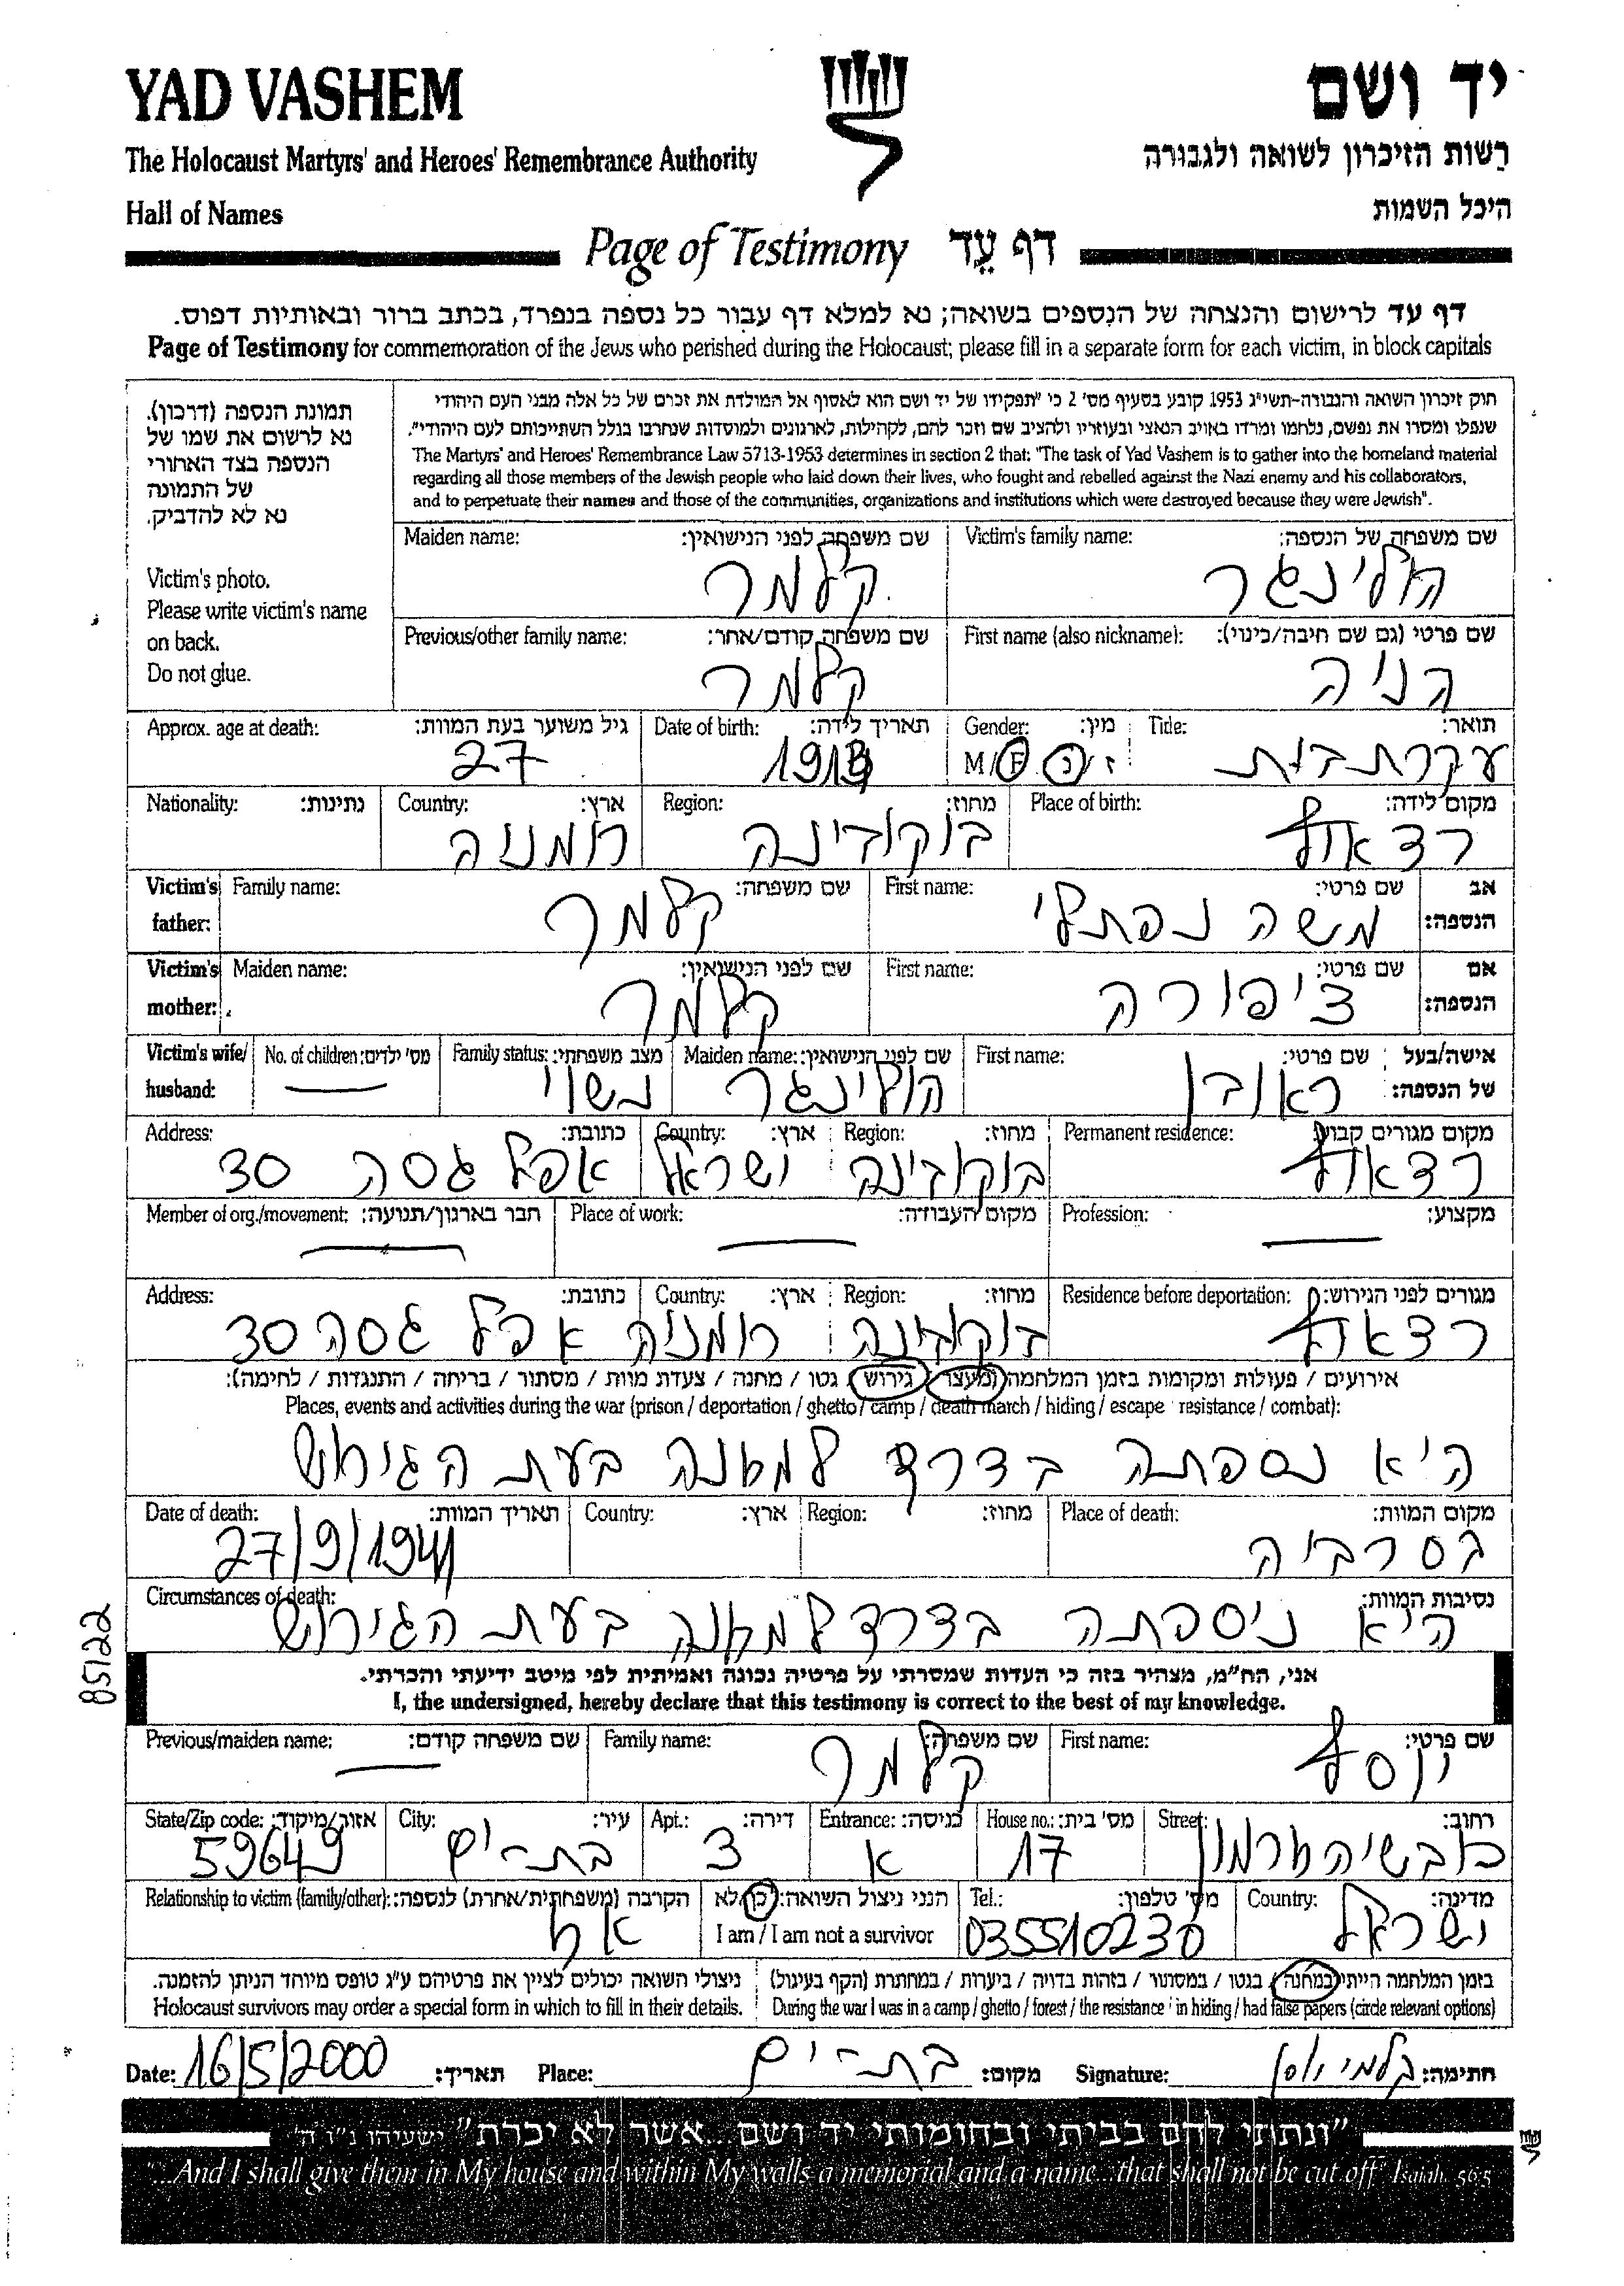 YAD VASHEM
יד ושם
The Holocaust Martyrs' and Heroes' Remembrance Authority
רשות הזיכרון לשואה ולגבורה
Hall of Names
היכל השמות
Page of Testimony דף עֵד
דף עד לרישום והנצחה של הנספים בשואה; נא למלא דף עבור כל נספה בנפרד, בכתב ברור ובאותיות דפוס.
Page of Testimony for commemoration of the Jews who perished during the Holocaust; please fill in a separate form for each victim, in block capitals
תמונת הנספה (דרכון).
נא לרשום את שמו של
הנספה בצד האחורי
של התמונה
נא לא להדביק.
Victim's photo.
Please write victim's name
on back.
Do not glue.
חוק זיכרון השואה והגבורה-תשי"ג 1953 קובע בסעיף מס' 2 כי "תפקידו של יד ושם הוא לאסוף אל המולדת את זכרם של כל אלה מבני העם היהודי
שנפלו ומסרו את נפשם, נלחמו ומרדו באויב הנאצי ובעוזריו ולהציב שם וזכר להם, לקהילות, לארגונים ולמוסדות שנחרבו בגלל השתייכותם לעם היהודי".
The Martyrs' and Heroes' Remembrance Law 5713-1953 determines in section 2 that: "The task of Yad Vashem is to gather into the homeland material
regarding all those members of the Jewish people who laid down their lives, who fought and rebelled against the Nazi enemy and his collaborators,
and to perpetuate their names and those of the communities, organizations and institutions which were destroyed because they were Jewish".
שם משפחה של הנספה: Victim's family name: שם משפחה לפני הנישואין: Maiden name:
הולינגר קלמר
שם פרטי (גם שם חיבה/כינוי): First name (also nickname): שם משפחה קודם/אחר: Previous/other family name:
הניה קלמר
תואר: Title: מין: Gender: תאריך לידה: Date of birth: גיל משוער בעת המוות: Approx. age at death:
עקרת בית ז / נ M / F 27
מקום לידה: Place of birth: מחוז: Region: ארץ: Country: נתינות: Nationality:
רדאוץ בוקובינה רומניה
אב הנספה: שם פרטי: First name: שם משפחה: Family name: Victim's father:
משה נפתלי קלמר
אם הנספה: שם פרטי: First name: שם לפני הנישואין: Maiden name: Victim's mother:
ציפורה קלמר
אישה/בעל של הנספה: שם פרטי: First name: שם לפני הנישואין: Maiden name: מצב משפחתי: Family status: מס' ילדים: No. of children: Victim's wife/ husband:
ראובן הולינגר נשוי —
מקום מגורים קבוע: Permanent residence: מחוז: Region: ארץ: Country: כתובת: Address:
רדאוץ בוקובינה ישראל אפל גסה 30
מקצוע: Profession: מקום העבודה: Place of work: חבר בארגון/תנועה: Member of org./movement:
— — —
מגורים לפני הגירוש: Residence before deportation: מחוז: Region: ארץ: Country: כתובת: Address:
רדאוץ בוקובינה רומניה אפל גסה 30
אירועים / פעולות ומקומות בזמן המלחמה (מעצר / גירוש / גטו / מחנה / צעדת מוות / מסתור / בריחה / התנגדות / לחימה):
Places, events and activities during the war (prison / deportation / ghetto / camp / death march / hiding / escape / resistance / combat):
היא נספתה בדרך למחנה בעת הגירוש
מקום המוות: Place of death: מחוז: Region: ארץ: Country: תאריך המוות: Date of death:
בסרביה 27/9/1941
נסיבות המוות: Circumstances of death:
היא ניספתה בדרך למחנה בעת הגירוש
85122
אני, הח"מ, מצהיר בזה כי העדות שמסרתי על פרטיה נכונה ואמיתית לפי מיטב ידיעתי והכרתי.
I, the undersigned, hereby declare that this testimony is correct to the best of my knowledge.
שם פרטי: First name: שם משפחה: Family name: שם משפחה קודם: Previous/maiden name:
יוסף קלמר —
רחוב: Street: מס' בית: House no.: כניסה: Entrance: דירה: Apt.: עיר: City: אזור/מיקוד: State/Zip code:
17 א 3 בת-ים 59649
מדינה: Country: מס' טלפון: Tel.: הנני ניצול השואה: כן/לא הקרבה (משפחתית/אחרת) לנספה: Relationship to victim (family/other):
ישראל 035510230 I am / I am not a survivor אח
בזמן המלחמה הייתי במחנה / בגטו / במסתור / בזהות בדויה / ביערות / במחתרת (הקף בעיגול)
During the war I was in a camp / ghetto / forest / the resistance / in hiding / had false papers (circle relevant options)
ניצולי השואה יכולים לציין את פרטיהם ע"ג טופס מיוחד הניתן להזמנה.
Holocaust survivors may order a special form in which to fill in their details.
חתימה: Signature: מקום: בת-ים Place: תאריך: 16/5/2000 Date:
"ונתתי להם בביתי ובחומותי יד ושם...אשר לא יכרת" ישעיהו נ"ו ה'
"...And I shall give them in My house and within My walls a memorial and a name...that shall not be cut off" Isaiah, 56:5